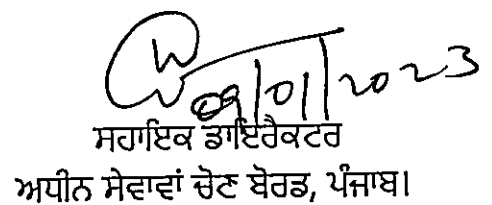 09/01/2023
ਸਹਾਇਕ ਡਾਇਰੈਕਟਰ
ਅਧੀਨ ਸੇਵਾਵਾਂ ਚੋਣ ਬੋਰਡ, ਪੰਜਾਬ।